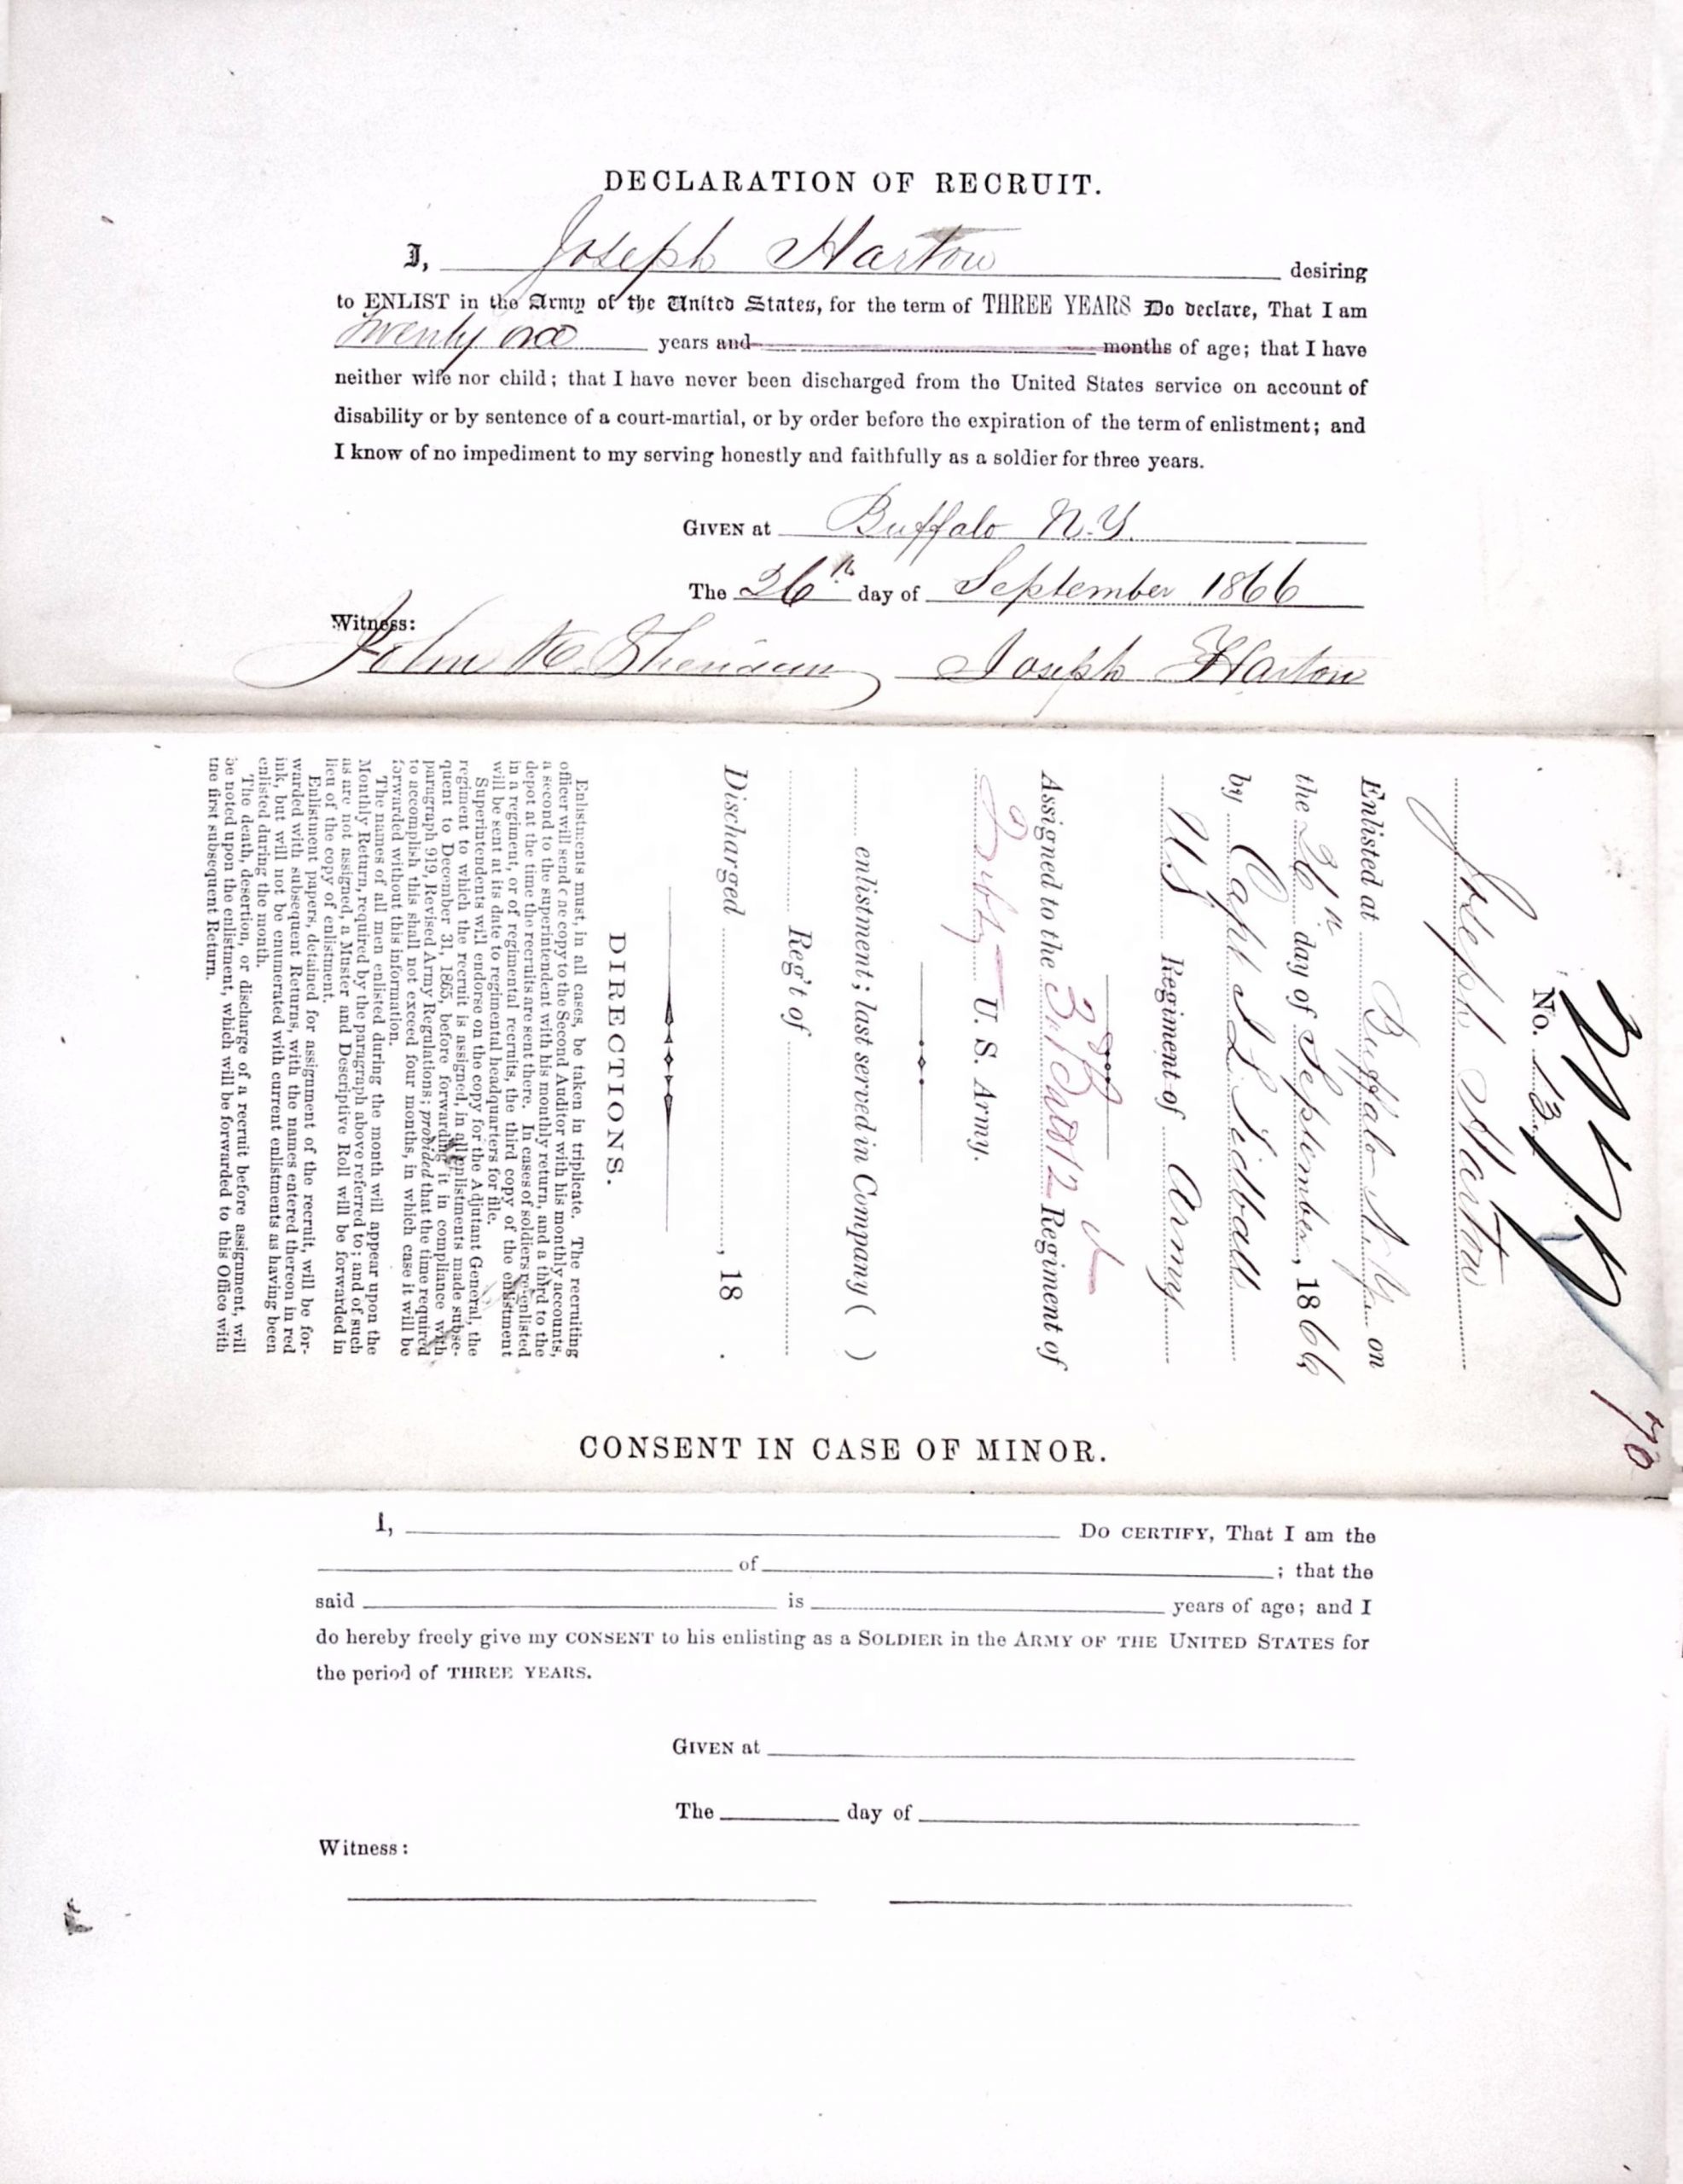 DECLARATION OF RECRUIT.
I, Joseph Harton desiring
to ENLIST in the Army of the United States, for the term of THREE YEARS Do declare, That I am
twenty one years and months of age; that I have
neither wife nor child; that I have never been discharged from the United States service on account of
disability or by sentence of a court-martial, or by order before the expiration of the term of enlistment; and
I know of no impediment to my serving honestly and faithfully as a soldier for three years.
GIVEN at Buffalo N.Y.
The 26th day of September 1866
Witness:
John Joseph Harton
No. 13
Joseph Harton
Enlisted at Buffalo N.Y. on
the 26th day of September, 1866
by Capt
US Regiment of Army
Assigned to the 3rd Batt 12 Regiment of
U. S. Army.
enlistment; last served in Company ( )
Reg't of
Discharged , 18 .
DIRECTIONS.
Enlistments must, in all cases, be taken in triplicate. The recruiting
officer will send one copy to the Second Auditor with his monthly accounts,
a second to the superintendent with his monthly return, and a third to the
depot at the time the recruits are sent there. In cases of soldiers re-enlisted
in a regiment, or of regimental recruits, the third copy of the enlistment
will be sent at its date to regimental headquarters for file.
Superintendents will endorse on the copy for the Adjutant General, the
regiment to which the recruit is assigned, in all enlistments made subse-
quent to December 31, 1865, before forwarding it in compliance with
paragraph 919, Revised Army Regulations; provided that the time required
to accomplish this shall not exceed four months, in which case it will be
forwarded without this information.
The names of all men enlisted during the month will appear upon the
Monthly Return, required by the paragraph above referred to; and of such
as are not assigned, a Muster and Descriptive Roll will be forwarded in
lieu of the copy of enlistment.
Enlistment papers, detained for assignment of the recruit, will be for-
warded with subsequent Returns, with the names entered thereon in red
ink, but will not be enumerated with current enlistments as having been
enlisted during the month.
The death, desertion, or discharge of a recruit before assignment, will
be noted upon the enlistment, which will be forwarded to this Office with
the first subsequent Return.
CONSENT IN CASE OF MINOR.
I, DO CERTIFY, That I am the
of ; that the
said is years of age; and I
do hereby freely give my CONSENT to his enlisting as a SOLDIER in the ARMY OF THE UNITED STATES for
the period of THREE YEARS.
GIVEN at
The day of
Witness: